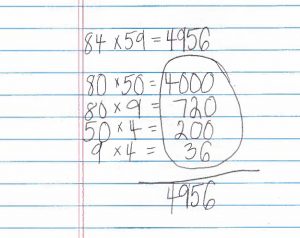 84 × 59 = 4956
80 × 50 = 4000
80 × 9 = 720
50 × 4 = 200
9 × 4 = 36
4956